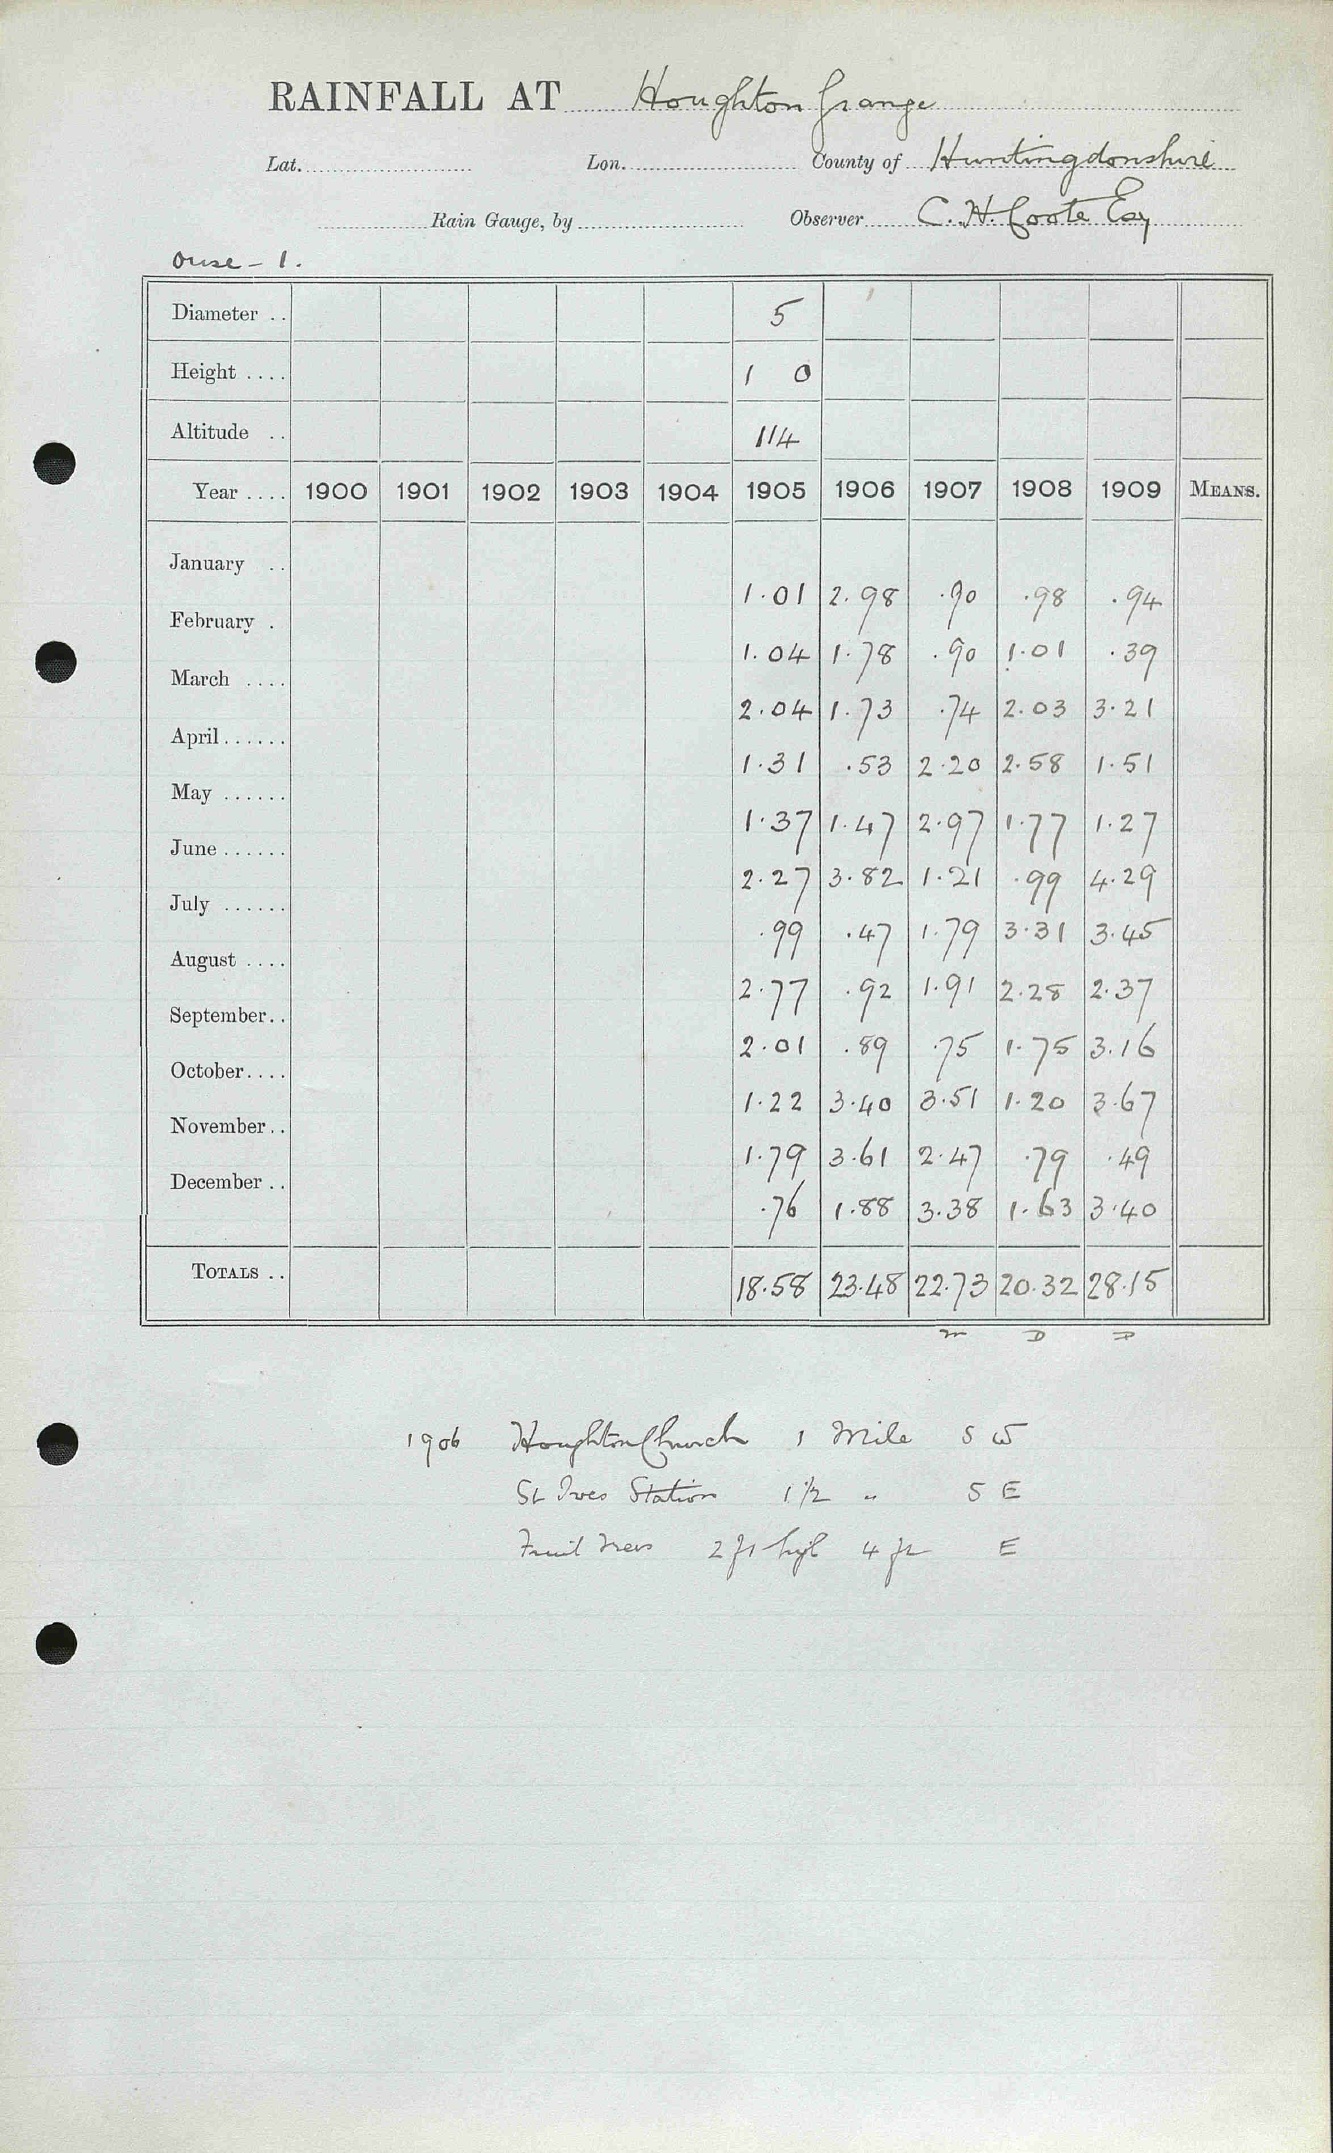 RAINFALL AT Houghton Grange
Lat. Lon. County of Huntingdonshire
Rain Gauge, by Observer C. H. Coote Esq
Ouse - 1.
Diameter .. 5
Height .... 1 0
Altitude .. 114
Year .... 1900 1901 1902 1903 1904 1905 1906 1907 1908 1909 MEANS.
January .. 1.01 2.98 .90 .98 .94
February . 1.04 1.78 .90 1.01 .39
March .... 2.04 1.73 .74 2.03 3.21
April...... 1.31 .53 2.20 2.58 1.51
May ...... 1.37 1.47 2.97 1.77 1.27
June ...... 2.27 3.82 1.21 .99 4.29
July ...... .99 .47 1.79 3.31 3.45
August .... 2.77 .92 1.91 2.28 2.37
September.. 2.01 .89 .75 1.75 3.16
October.... 1.22 3.40 3.51 1.20 3.67
November.. 1.79 3.61 2.47 .79 .49
December .. .76 1.88 3.38 1.63 3.40
TOTALS .. 18.58 23.48 22.73 20.32 28.15
m D D
1906 Houghton Church 1 Mile S W
St Ives Station 1 1/2 " S E
Fruit Trees 2 ft high 4 ft E